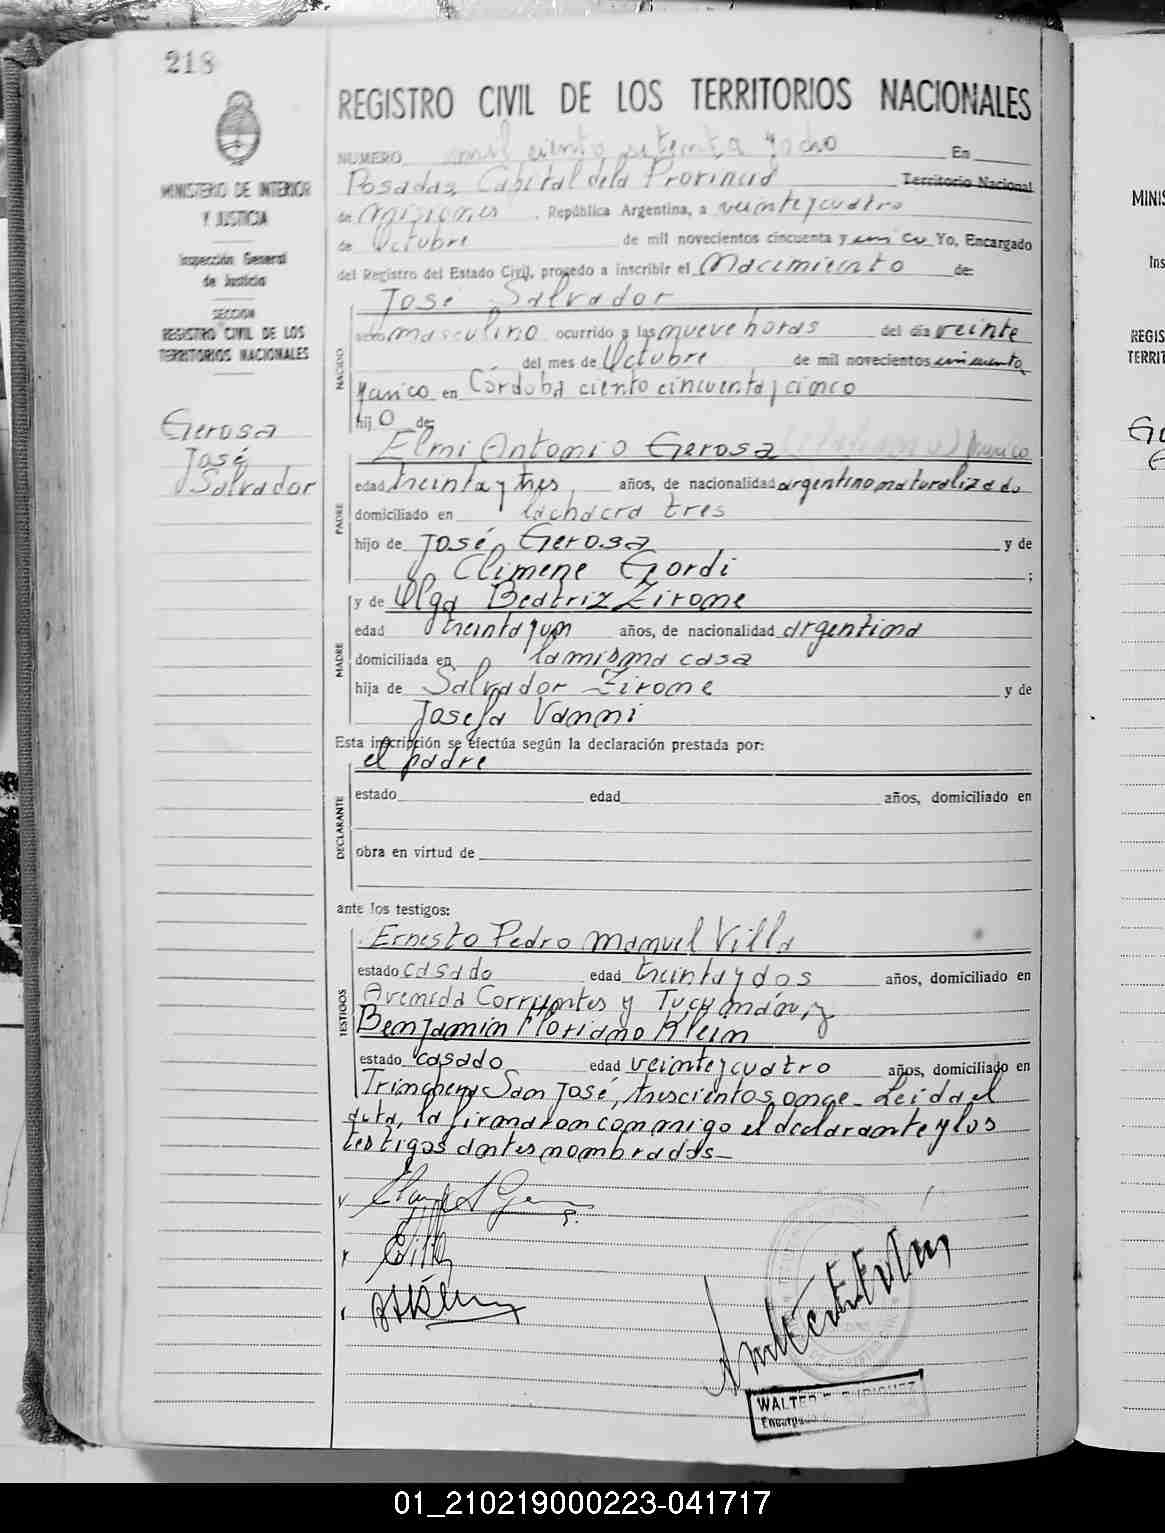 218
REGISTRO CIVIL DE LOS TERRITORIOS NACIONALES
MINISTERIO DE INTERIOR
Y JUSTICIA
Inspección General
de Justicia
SECCION
REGISTRO CIVIL DE LOS
TERRITORIOS NACIONALES
Gerosa
José
Salvador
NUMERO mil ciento setenta y ocho En
Posadas, Capital de la Provincia Territorio Nacional
de Misiones, República Argentina, a veintey cuatro
de Octubre de mil novecientos cincuenta y Yo, Encargado
del Registro del Estado Civil, procedo a inscribir el Nacimiento de:
José Salvador
NACIDO
sexo masculino ocurrido a las nueve horas del día veinte
del mes de Octubre de mil novecientos
en Córdoba ciento cincuenta y cinco
hij O de:
Elmi Antonio Gerosa
PADRE
edad treinta y tres años, de nacionalidad argentino naturalizado
domiciliado en la chacra tres
hijo de José Gerosa y de
Climene Gordi ;
y de Olga Beatriz Zirone
MADRE
edad treinta y un años, de nacionalidad argentina
domiciliada en la misma casa
hija de Salvador Zirone y de
Josefa Vanni
Esta inscripción se efectúa según la declaración prestada por:
el padre
DECLARANTE
estado edad años, domiciliado en
obra en virtud de
ante los testigos:
TESTIGOS
Ernesto Pedro Manuel Villa
estado casado edad treinta y dos años, domiciliado en
Avenida Corrientes y Tucumán y
Benjamin Floriano Klein
estado casado edad veinte y cuatro años, domiciliado en
Trinchera San José, trescientos onze - Leida el
acta, la firmaron conmigo el declarante y los
testigos antes nombrados -
WALTER
Encargado
01_210219000223-041717